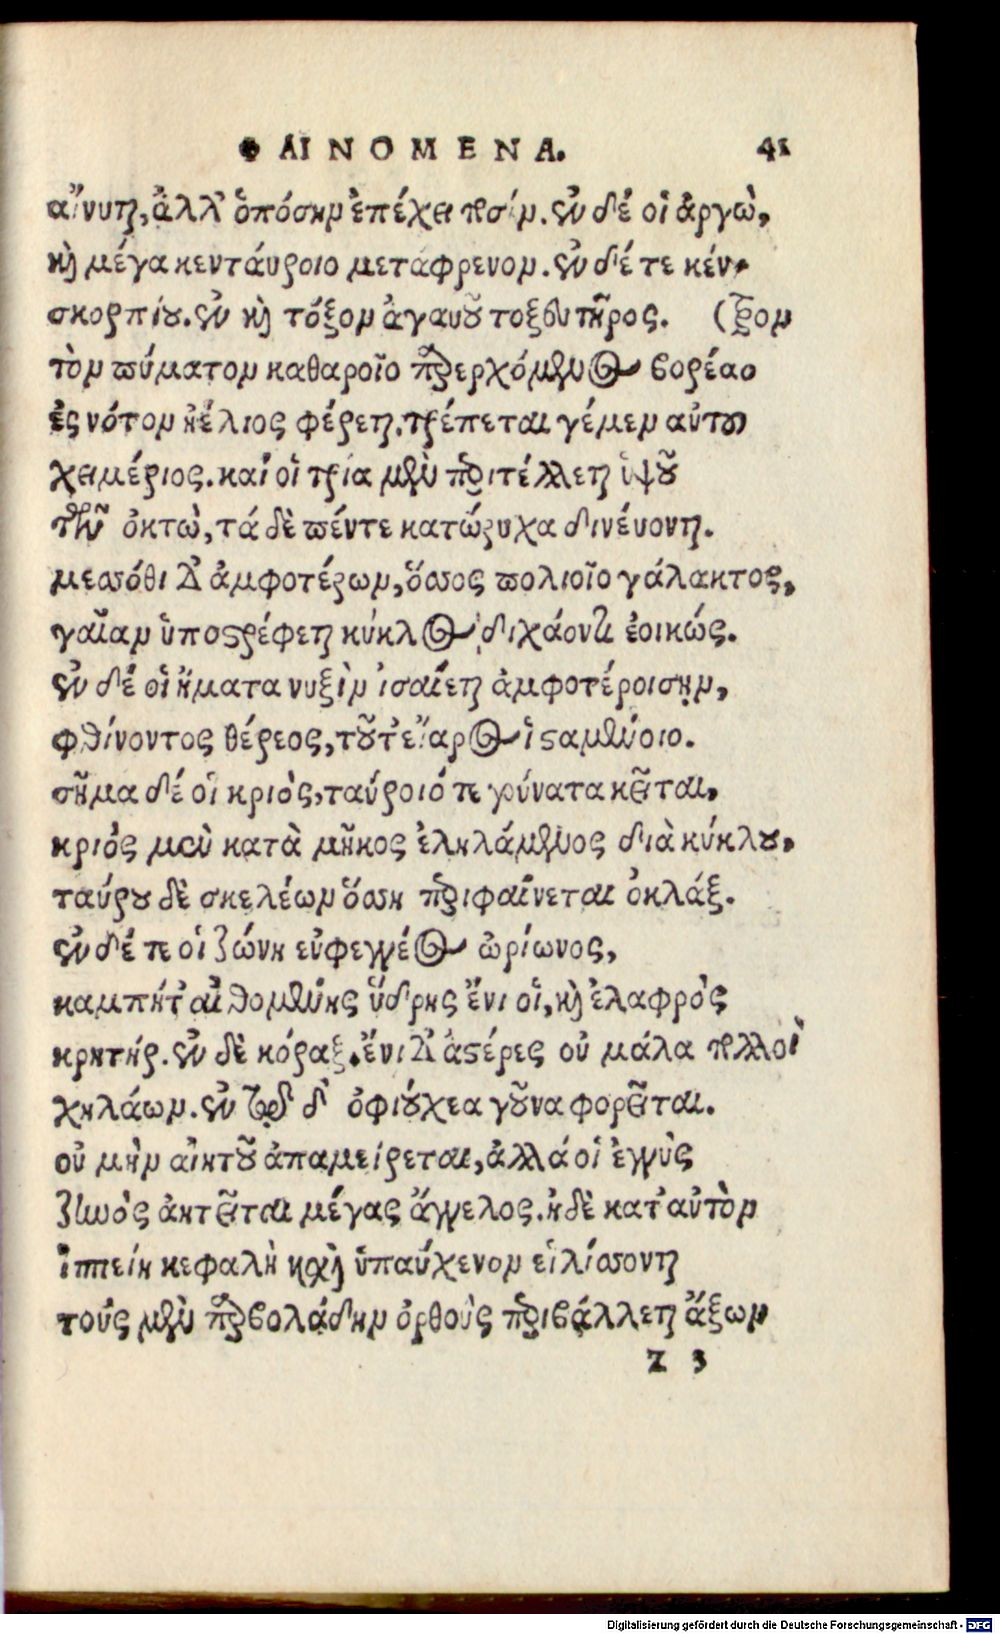 ΦΑΙΝΟΜΕΝΑ. 41
αἴνυται, ἀλλ' ὁπόσην ἐπέχει ποσίν. ἐν δέ οἱ ἀργὼ,
καὶ μέγα κενταύροιο μετάφρενον. ἐν δέ τε κέν-
σκορπίου. ἐν καὶ τόξον ἀγαυοῦ τοξευτῆρος. (τρον
τὸν πύματον καθαροῖο παρερχόμενος βορέαο
ἐς νότον ἠέλιος φέρεται. τρέπεται γέ μεν αὐτοῦ
χειμέριος. καί οἱ τρία μὲν περιτέλλεται ὑψοῦ
τῶν ὀκτὼ, τά δὲ πέντε κατώρυχα δινέυονται.
μεσσόθι δ' ἀμφοτέρων, ὅσσος πολιοῖο γάλακτος,
γαῖαν ὑποστρέφεται κύκλος διχάοντι ἐοικώς.
ἐν δέ οἱ ἤματα νυξὶν ἰσαίεται ἀμφοτέροισην,
φθίνοντος θέρεος, τοῦτ' εἴαρος ἱσταμένοιο.
σῆμα δέ οἱ κριὸς, ταύροιό τε γούνατα κεῖται,
κριός μεν κατὰ μῆκος ἐληλάμενος διὰ κύκλου,
ταύρου δὲ σκελέων ὅσση περιφαίνεται ὀκλάξ.
ἐν δέ τε οἱ ζώνη εὐφεγγέος ὠρίωνος,
καμπήτ' αἰθομένης ὕδρης ἔνι οἱ, καὶ ἐλαφρός
κρητήρ. ἐν δὲ κόραξ. ἔνι δ' ἀστέρες οὐ μάλα πολλοὶ
χηλάων. ἐν τῷ δ' ὀφιούχεα γοῦνα φορεῖται.
οὐ μὴν αἰητοῦ ἀπαμείρεται, ἀλλά οἱ ἐγγὺς
ζηνὸς ἀητεῖται μέγας ἄγγελος. ἡ δὲ κατ' αὐτὸν
ἱππείη κεφαλὴ καὶ ὑπαύχενον εἱλίσσονται
τοὺς μὲν παρβολάδην ὀρθοὺς περιβάλλεται ἄξων
Z 3
Digitalisierung gefördert durch die Deutsche Forschungsgemeinschaft - DFG